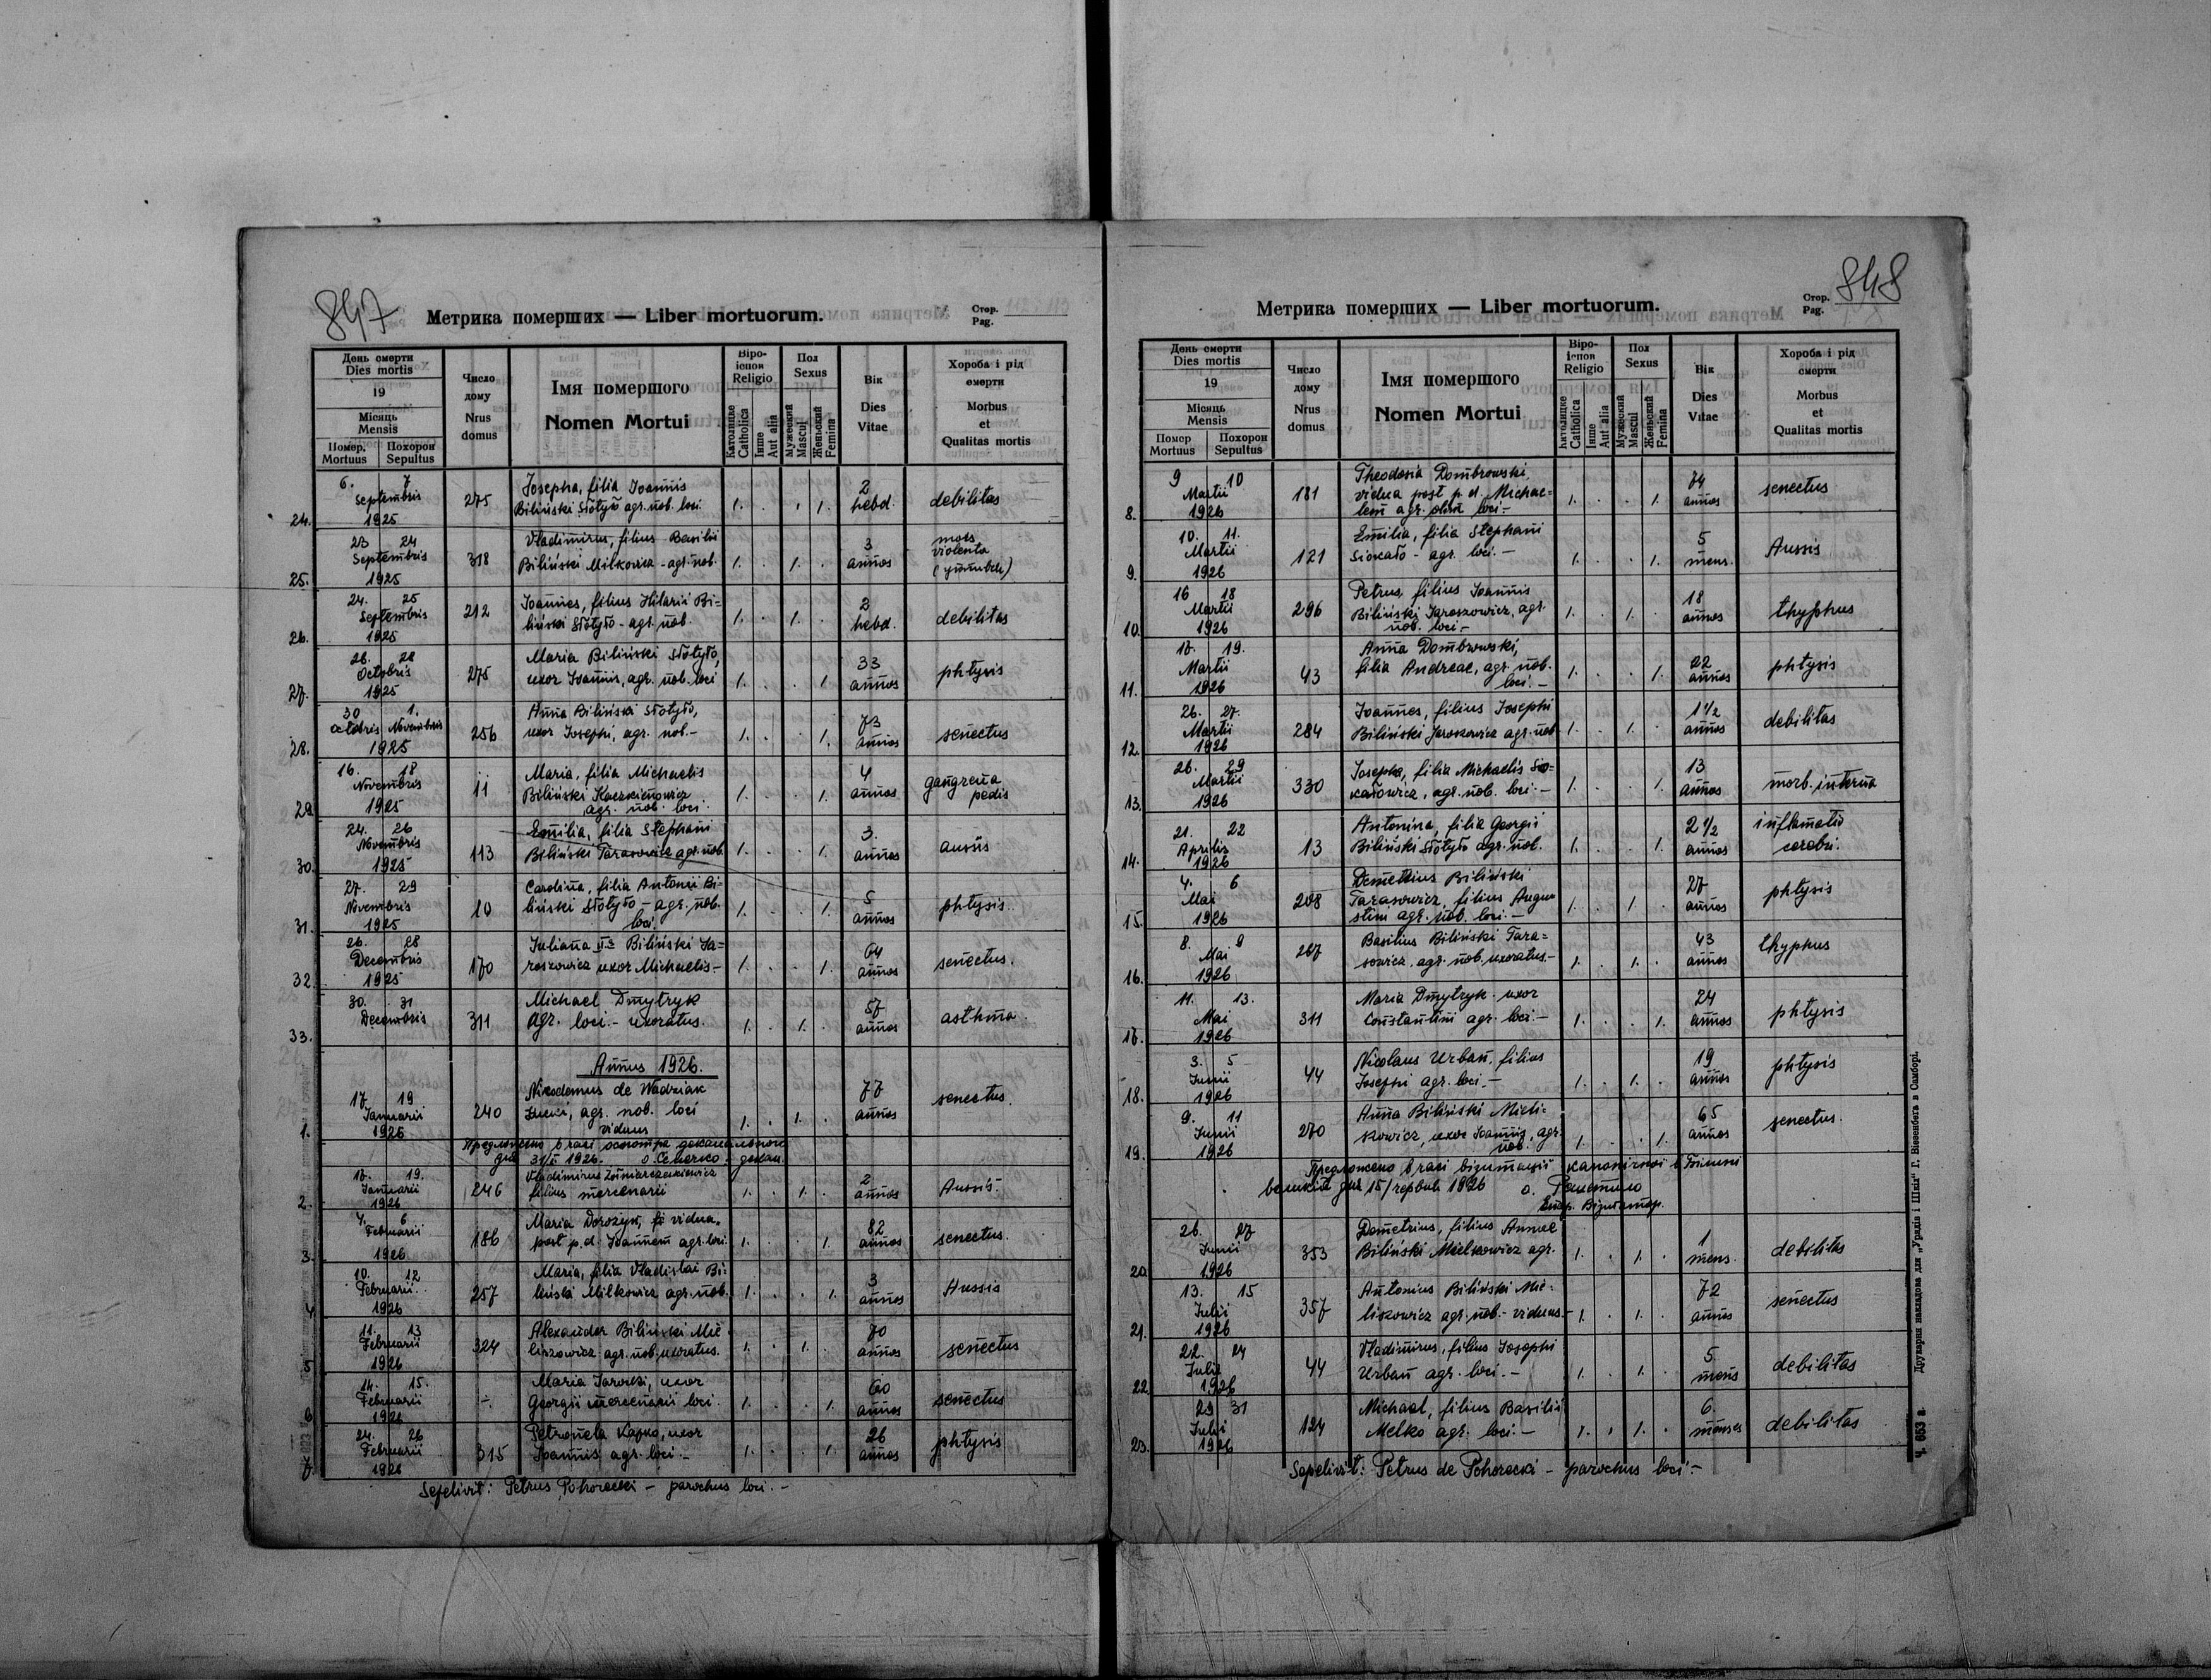 847
Метрика померших — Liber mortuorum.
Стор.
Pag.
День смерти
Dies mortis
19
Місяць
Mensis
Помер, Похорон
Mortuus Sepultus
Число
дому
Nrus
domus
Імя помершого
Nomen Mortui
Віро-
іспов
Religio
Католицке
Catholica
Інше
Aut alia
Пол
Sexus
Мужеский
Mascul
Женьский
Femina
Вік
Dies
Vitae
Хороба і рід
смерти
Morbus
et
Qualitas mortis
24. 6. 7 Septembris 1925
275
Josepha, filia Joannis
Biliński Słotyło agr. nob. loci
1. . . 1.
2 hebd.
debilitas
25. 23 24 Septembris 1925
318
Vladimirus, filius Basilii
Biliński Milkowicz - agr. nob.
1. . 1. .
3 annos
mors
violenta
26. 24. 25 Septembris 1925
212
Joannes, filius Hilarii Bi-
liński Słotyło - agr. nob.
1. . 1. .
2 hebd.
debilitas
27. 26. 28 Octobris 1925
275
Maria Biliński Słotyło,
uxor Joannis, agr. nob. loci
1. . . 1.
33 annos
phtysis
28. 30 1. Octobris Novembris 1925
256
Anna Biliński Słotyło,
uxor Josephi, agr. nob. -
1. . . 1.
73 annos
senectus
29 16. 18 Novembris 1925
11
Maria, filia Michaelis
Biliński Kaczkienowicz
agr. nob. loci.
1. . . 1.
4 annos
gangrena
pedis
30. 24. 26 Novembris 1925
113
Emilia, filia Stephani
Biliński Tarasowicz agr. nob
1. . . 1.
3. annos
31. 27. 29 Novembris 1925
10
Carolina, filia Antonii Bi-
liński Słotyło - agr. nob.
loci.
1. . . 1.
5 annos
phtysis.
32. 26. 28 Decembris 1925
170
Juliana Biliński Ja-
roszowicz uxor Michaelis -
1. . . 1.
64 annos
senectus.
33. 30. 31 Decembris
311
Michael Dmytryk
agr. loci. - uxoratus.
1. . 1. .
57 annos
asthma.
Annus 1926.
1. 17 19 Januarii 1926
240
Nicodemus de Wadziak
agr. nob. loci
viduus
1. . 1. .
77 annos
senectus.
Предложено в часі осмотра деканального
дня 31/I 1926. о. декан.
2. 18. 19. Januarii 1926
246
Vladimirus
filius mercenarii
1. . 1. .
2 annos
Tussis.
3. 4. 6 Februarii 1926
186
Maria Dorożyk, vidua
post p. d. Joannem agr. loci.
1. . . 1.
82 annos
senectus.
4 10. 12 Februarii 1926
257
Maria, filia Vladislai Bi-
liński Milkowicz agr. nob.
1. . . 1.
3 annos
Tussis
5 11. 13 Februarii 1926
324
Alexander Biliński Mie-
agr. nob. uxoratus.
1. . 1. .
70 annos
senectus
6 14. 15. Februarii 1926
-
Maria Jaworski, uxor
Georgii mercenarii loci.
1. . . 1.
60 annos
senectus
7. 24. 26 Februarii 1926
315
Petronela Kapko, uxor
Joannis agr. loci. -
1. . . 1.
26 annos
phtysis
Sepelivit: Petrus Pohorecki - parochus loci. -
848
Метрика померших — Liber mortuorum.
Стор.
Pag.
День смерти
Dies mortis
19
Місяць
Mensis
Помер Похорон
Mortuus Sepultus
Число
дому
Nrus
domus
Імя помершого
Nomen Mortui
Віро-
іспов
Religio
Католицке
Catholica
Інше
Aut alia
Пол
Sexus
Мужеский
Mascul
Женьский
Femina
Вік
Dies
Vitae
Хороба і рід
смерти
Morbus
et
Qualitas mortis
8. 9 10 Martii 1926
181
Theodosia Dombrowski,
vidua post p. d. Michae-
lem agr. olim loci -
1. . . 1.
74 annos
senectus
9. 10. 11. Martii 1926
121
Emilia, filia Stephani
Siokało - agr. loci. -
1. . . 1.
5 mens.
Tussis
10. 16 18 Martii 1926
296
Petrus, filius Joannis
Biliński Jaroszowicz, agr.
nob. loci -
1. . 1. .
18 annos
thyphus
11. 18. 19. Martii 1926
43
Anna Dombrowski,
filia Andreae, agr. nob.
loci. -
1. . . 1.
22 annos
phtysis
12. 26. 27. Martii 1926
284
Joannes, filius Josephi
Biliński Jaroszowicz agr. nob
1. . 1. .
1 1/2 annos
debilitas
13. 26. 29 Martii 1926
330
Josepha, filia Michaelis Sio-
kałowicz, agr. nob. loci. -
1. . . 1.
13 annos
morb. interna
14. 21. 22 Aprilis 1926
13
Antonina, filia Georgii
Biliński Słotyło agr. nob.
1. . . 1.
2 1/2 annos
inflamatio
cerebri.
15. 4. 6 Mai 1926
208
Demetrius Biliński
Tarasowicz, filius Augu-
stini agr. nob. loci. -
1. . 1. .
27 annos
phtysis
16. 8. 9 Mai 1926
267
Basilius Biliński Tara-
sowicz, agr. nob. uxoratus. -
1. . 1. .
43 annos
thyphus
17. 11. 13. Mai 1926
311
Maria Dmytryk - uxor
Constantini agr. loci. -
1. . . 1.
24 annos
phtysis
18. 3. 5 Junii 1926
44
Nicolaus Urban, filius
Josephi agr. loci. -
1. . 1. .
19 annos
phtysis
19. 9. 11 Junii 1926
270
Anna Biliński Mieli-
kowicz, uxor Joannis, agr.
nob.
1. . . 1.
65 annos
senectus.
Предложено в часі візитації канонічної в Билині
великій дня 15/ 1926 о.
Візитатор.
20. 26. 27 Junii 1926
353
Demetrius, filius Annae
Biliński Mielkowicz agr.
1. . 1. .
1 mens.
debilitas
21. 13. 15 Julii 1926
357
Antonius Biliński Mie-
likowicz agr. nob. - viduus. -
1. . 1. .
72 annos
senectus
22. 22. 24 Julii 1926
44
Vladimirus, filius Josephi
Urban agr. loci. -
1. . 1. .
5 mens
debilitas
23. 29 31 Julii 1926
124
Michael, filius Basilii
Melko agr. loci. -
1. . 1. .
6. menses
debilitas
Sepelivit: Petrus de Pohorecki - parochus loci. -
Ч. 653 а. Друкарня накладова для „Урядів і Шкіл“ Г. Візенберга в Самборі.